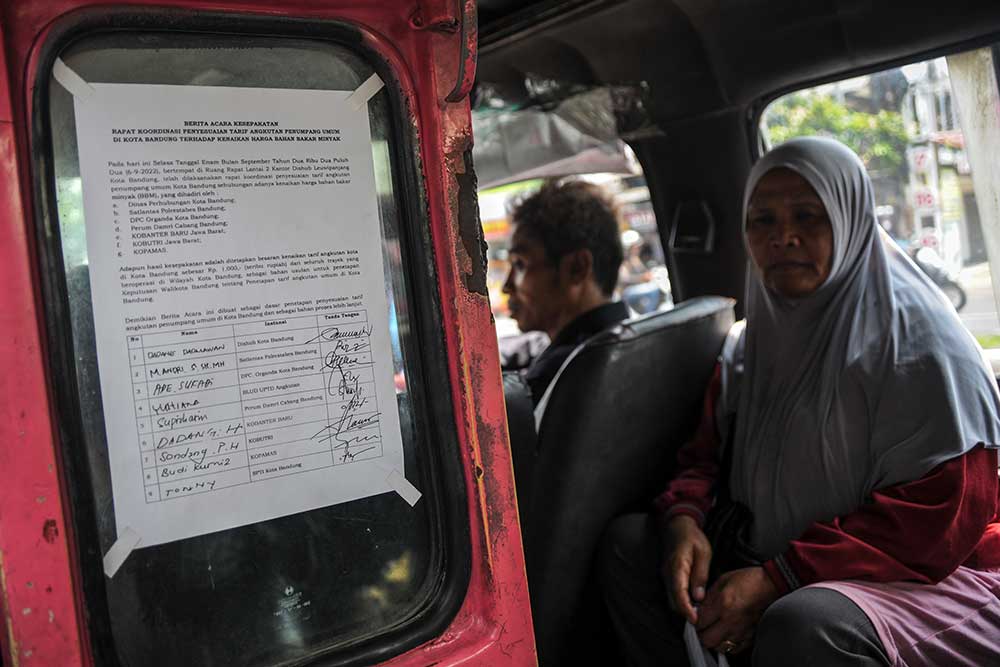 BERITA ACARA KESEPAKATAN
RAPAT KOORDINASI PENYESUAIAN TARIF ANGKUTAN PENUMPANG UMUM
DI KOTA BANDUNG TERHADAP KENAIKAN HARGA BAHAN BAKAR MINYAK
Pada hari ini Selasa Tanggal Enam Bulan September Tahun Dua Ribu Dua Puluh
Dua (6-9-2022), bertempat di Ruang Rapat Lantai 2 Kantor Dishub Leuwipanjang
Kota Bandung, telah dilaksanakan rapat koordinasi penyesuaian tarif angkutan
penumpang umum Kota Bandung sehubungan adanya kenaikan harga bahan bakar
minyak (BBM), yang dihadiri oleh :
a. Dinas Perhubungan Kota Bandung;
b. Satlantas Polrestabes Bandung;
c. DPC Organda Kota Bandung;
d. Perum Damri Cabang Bandung;
e. KOBANTER BARU Jawa Barat;
f. KOBUTRI Jawa Barat;
g. KOPAMAS.
Adapun hasil kesepakatan adalah ditetapkan besaran kenaikan tarif angkutan kota
di Kota Bandung sebesar Rp. 1.000,- (seribu rupiah) dari seluruh trayek yang
beroperasi di Wilayah Kota Bandung, sebagai bahan usulan untuk penetapan
Keputusan Walikota Bandung tentang Penetapan tarif angkutan umum di Kota
Bandung.
Demikian Berita Acara ini dibuat sebagai dasar penetapan penyesuaian tarif
angkutan penumpang umum di Kota Bandung dan sebagai bahan proses lebih lanjut.
No Nama Instansi Tanda Tangan
1 DADANG DARMAWAN Dishub Kota Bandung
2 M. ANDRI S. SH. MH Satlantas Polrestabes Bandung
3 APE. SUFABI DPC. Organda Kota Bandung
4 YULIANA BLUD UPTD Angkutan
5 Supriharin Perum Damri Cabang Bandung
6 DADANG. H KOBANTER BARU
7 Sondang. P.H KOBUTRI
8 Budi Kurnia KOPAMAS
9 TONNY BPTJ Kota Bandung